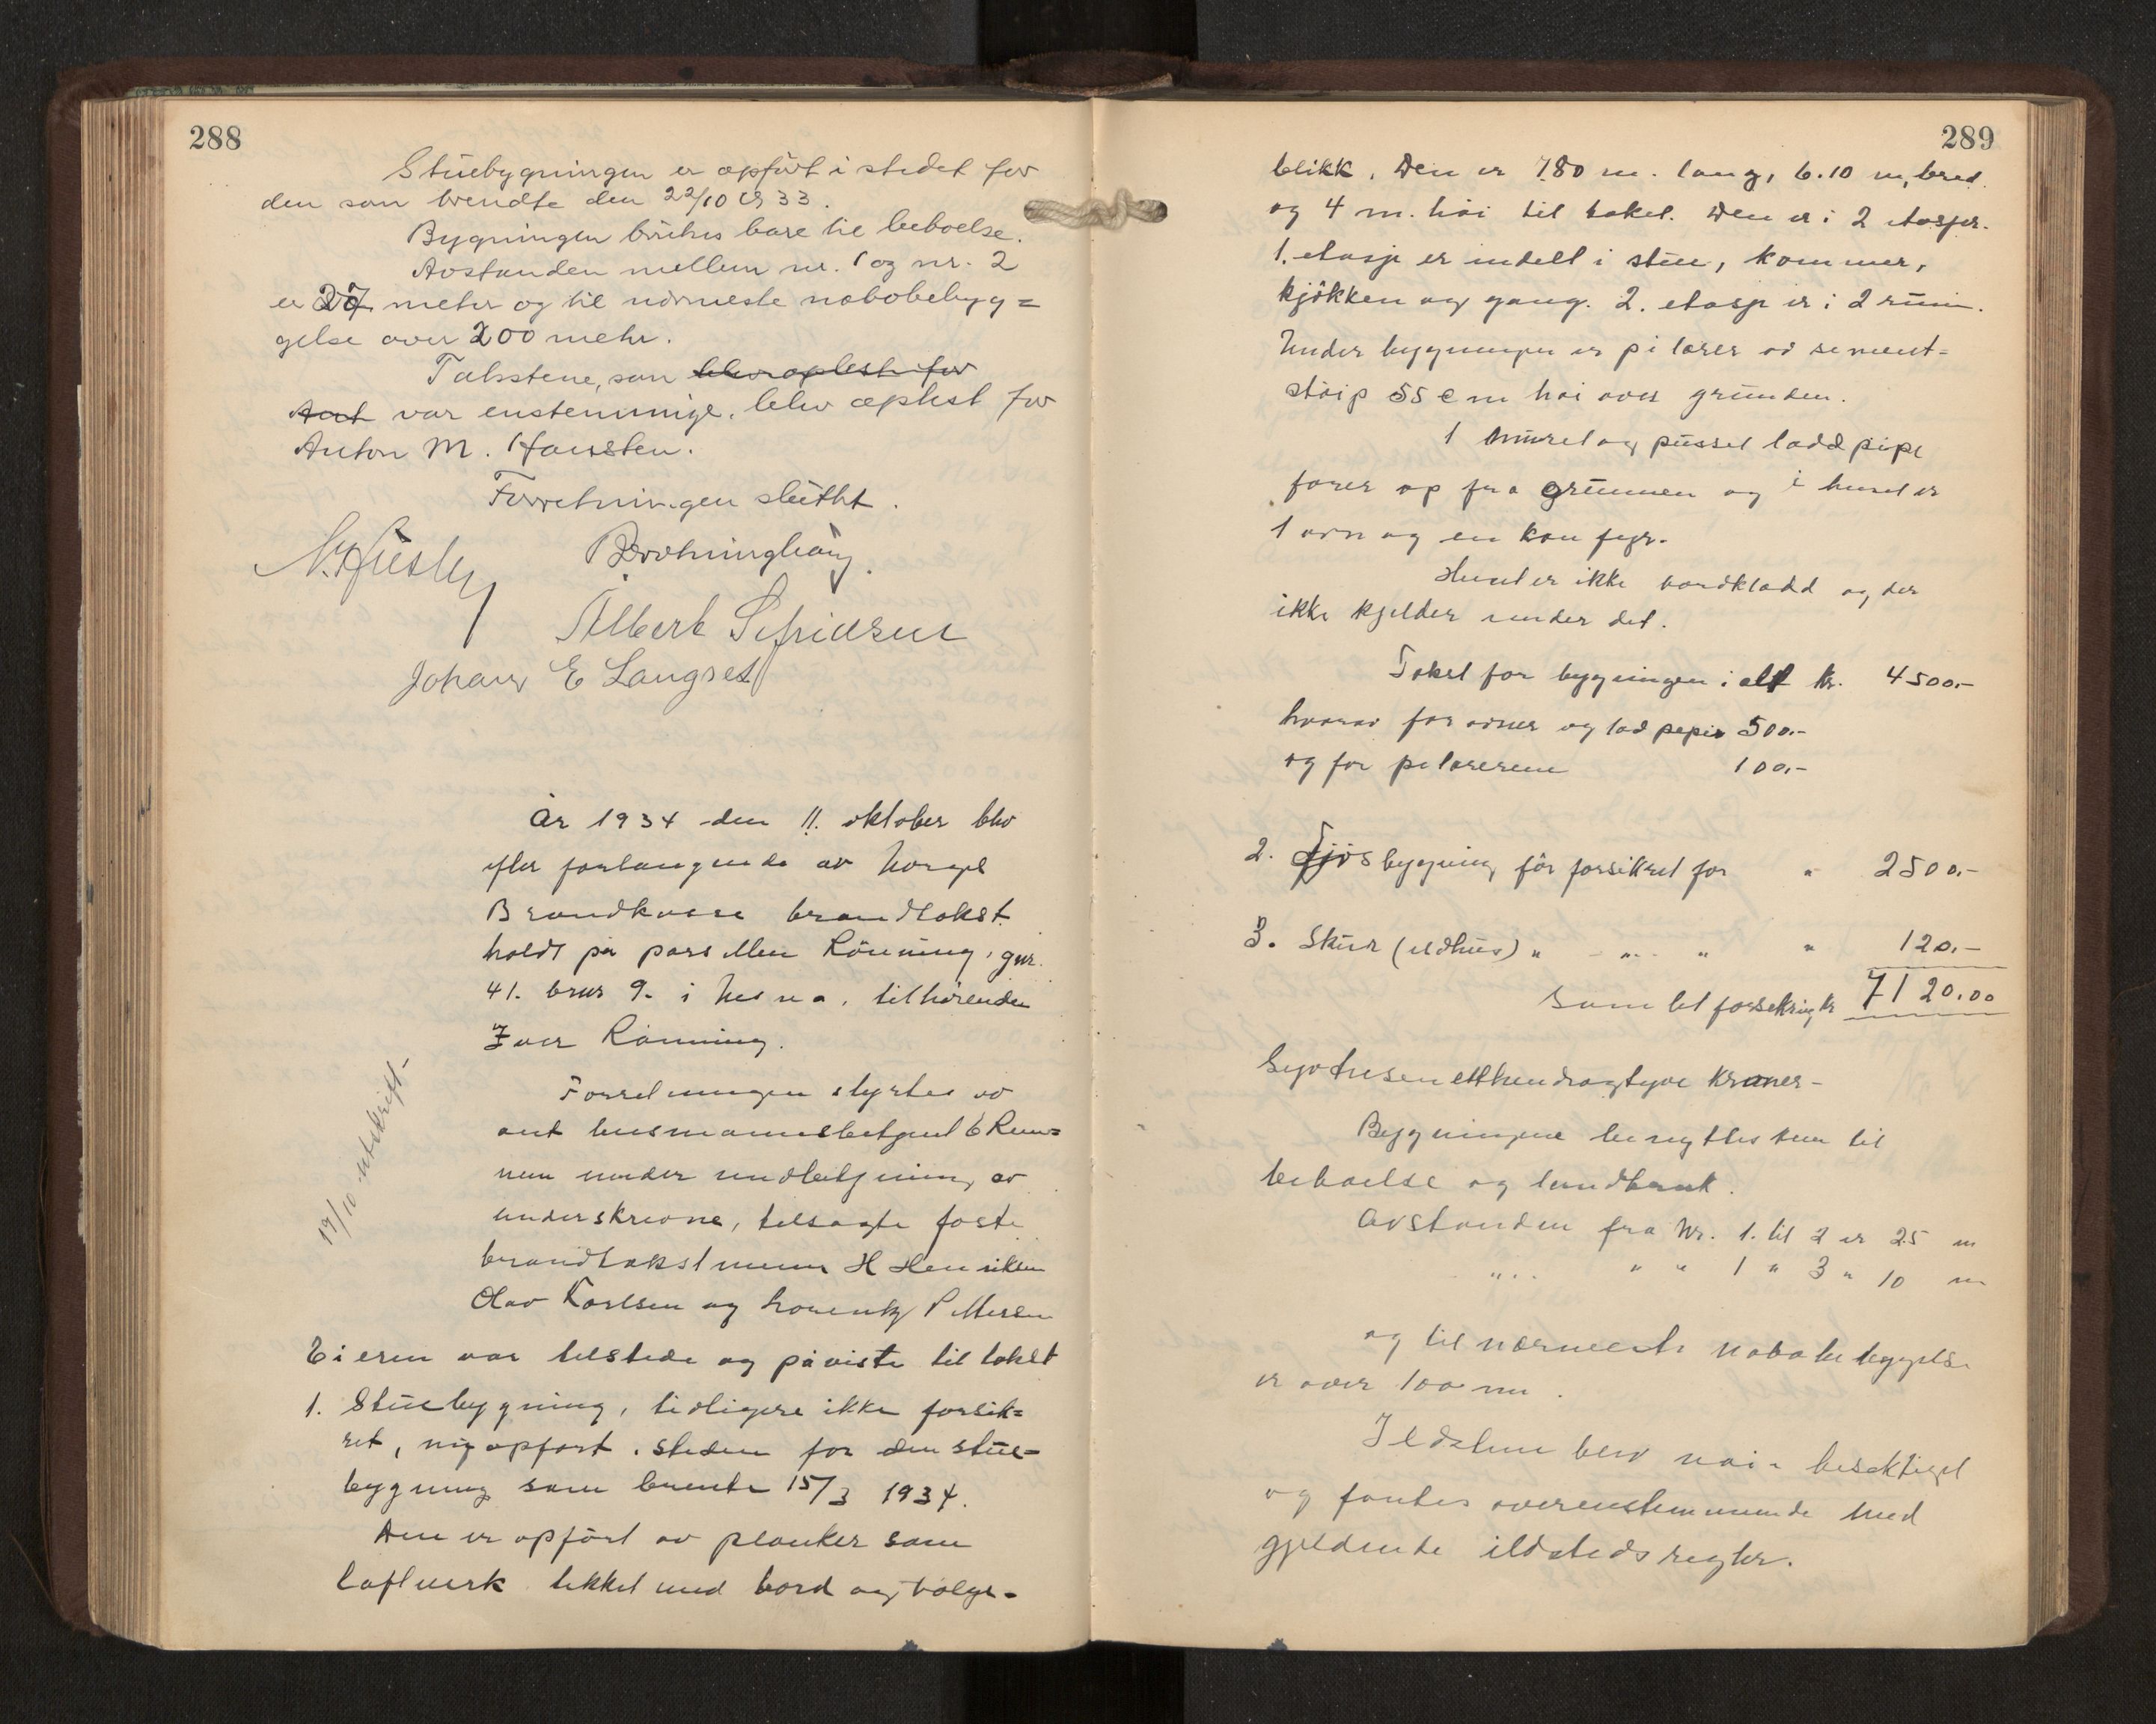 288
Stuebygningen er opført i stedet for
den som brendte den 22/10 19 33.
Bygningen brukes bare til beboelse.
Avstanden mellem nr. 1 og nr. 2
er 27 meter og til nærmeste nabobebyg=
gelse over 200 meter.
Takstene, som blev oplest for
Ant var enstemmige, blev oplest for
Anton M. Hansten.
Forretningen sluttet.
Albert Sefriasen
Johans E Langset
År 1934 den 11. oktober blev
efter forlangende av Norges
Brandkasse brandtakst
holdt på parsellen Rönning, gnr.
41. brnr 9. i Nesna, tilhörende
Iver Rönning.
Forretningen styrtes av
under undletgning av
underskrevne, tilsagte faste
brandtakstmenn H Henriksen
Olav Karlsen og Lorentz Pettersen
19/10 utskrift-
Eieren var tilstede og påviste til takst
1. Stuebygning, tidligere ikke forsik=
ret, ny opfört i steden for den stue=
bygning som brente 15/3 1934.
Den er opfört av planker som
laftverk tekket med bord og bölge=
289
blikk. Den er 7.80 m. lang, 6.10 m, bred
og 4 m. höi til taket. Den er i 2 etasjer.
1. etasje er indelt i stue, kammer,
kjökken og gang. 2. etasje er i 2 rum.
Under bygningen er pilarer av sement=
støip 55 cm höi over grunden.
1 muret og pusset ladd pipe
förer op fra grunnen og i huset er
1 ovn og en komfyr.
Huset er ikke bordkladd og der
ikke kjelder under det.
Takst for bygningen i alt kr. 4500.-
hvorav for ovner og lad pepis 500.-
og for pilarerene 100.-
2. Fjösbygning för forsikret for " 2500.-
3. Skur (eldhus) " " " " 120.-
Samlet forsekring kr 7120.00
Syvtusenetthundreogtyve kroner-
Bygningene benyttes kun til
beboelse og landbruk.
Avstanden fra Nr. 1. til 2 er 25 m
" " " 1 " 3 " 10 m
og til nærmeste nabobebyggelse
er over 100 m.
Ildstene blev nöie besiktiget
og fantes overenstemmende med
gjeldende ildstedsregler.